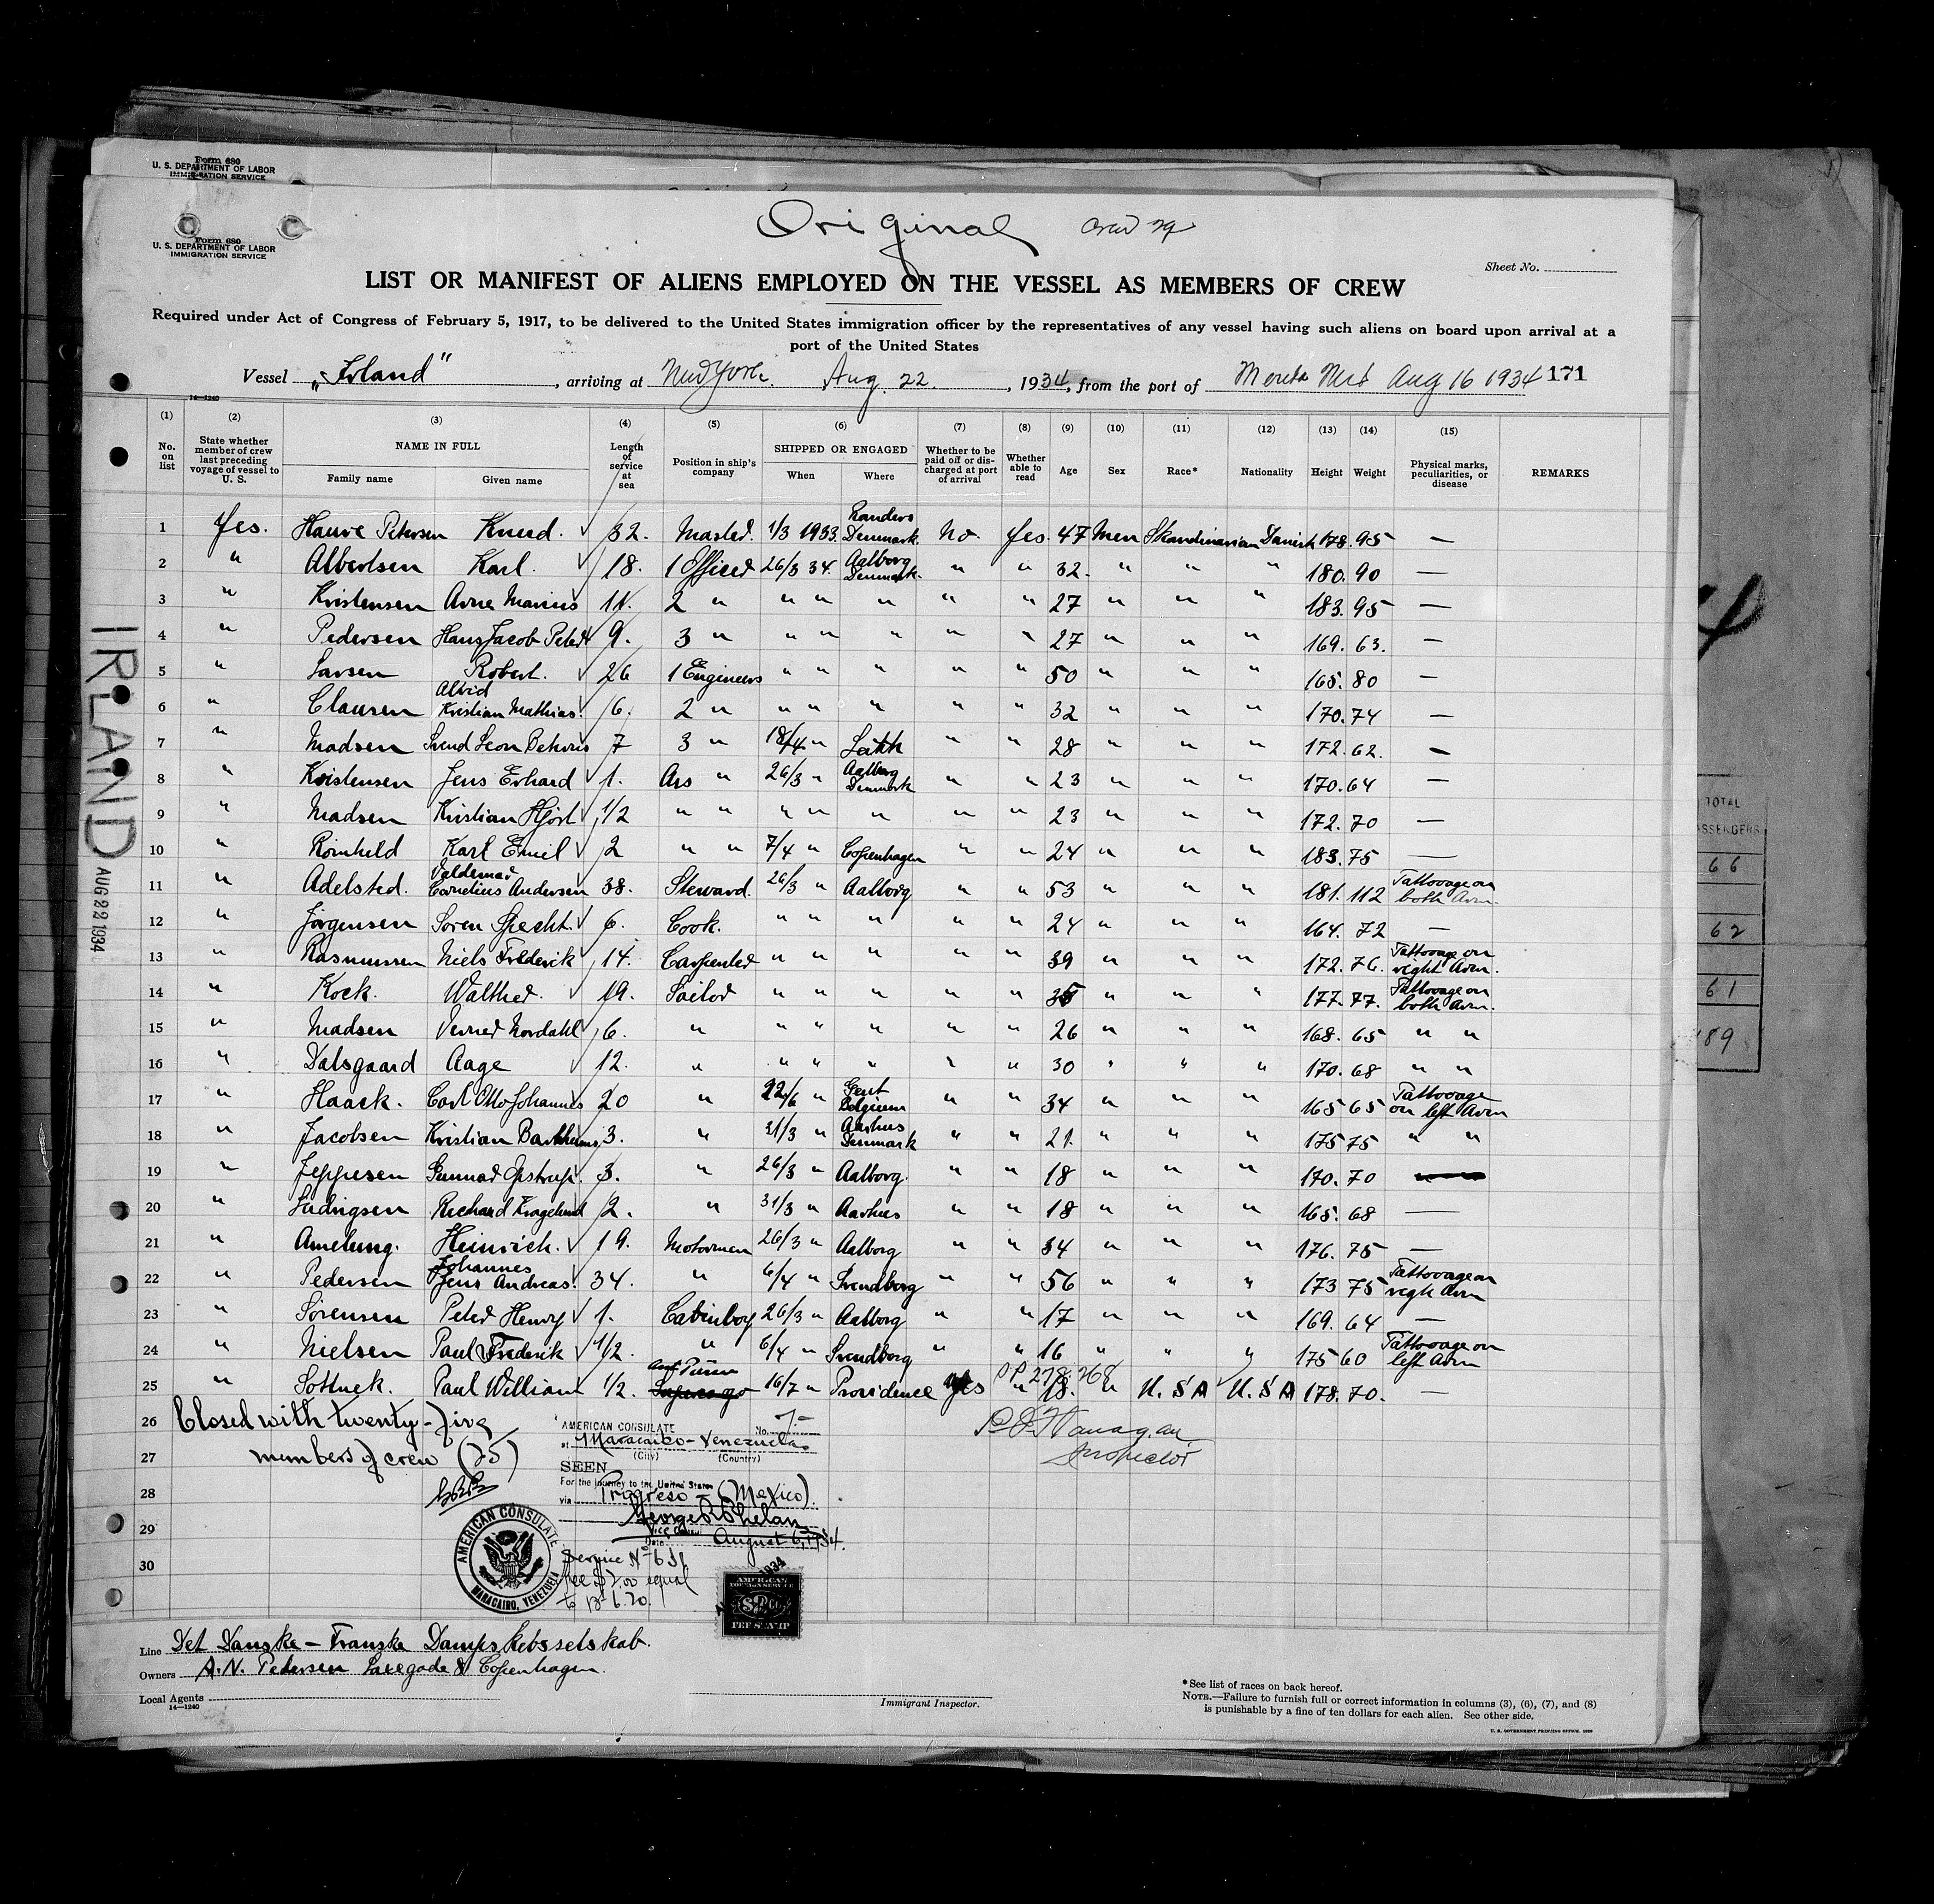 Form 680
U. S. DEPARTMENT OF LABOR
IMMIGRATION SERVICE
Form 680
U. S. DEPARTMENT OF LABOR
IMMIGRATION SERVICE
Original
Sheet No.
LIST OR MANIFEST OF ALIENS EMPLOYED ON THE VESSEL AS MEMBERS OF CREW
Required under Act of Congress of February 5, 1917, to be delivered to the United States immigration officer by the representatives of any vessel having such aliens on board upon arrival at a
port of the United States
Vessel „Irland", arriving at New York. Aug. 22, 1934, from the port of Aug 16 1934 171
14—1240
(1) (2) (3) (4) (5) (6) (7) (8) (9) (10) (11) (12) (13) (14) (15)
No. on list State whether member of crew last preceding voyage of vessel to U. S. NAME IN FULL Family name Given name Length of service at sea Position in ship's company SHIPPED OR ENGAGED When Where Whether to be paid off or discharged at port of arrival Whether able to read Age Sex Race* Nationality Height Weight Physical marks, peculiarities, or disease REMARKS
1 Yes. Hauve Petersen Knud. 32. Master. 1/3 1933. Randers Denmark No. Yes. 47 Men Skandinavian Danish 178. 95 —
2 " Albertsen Karl. 18. 1 Officer 26/3 34. Aalborg Denmark. " " 32. " " " 180. 90 —
3 " Kristensen Arne Marius 11. 2 " " " " " " 27 " " " 183. 95 —
4 " Pedersen Hans Jacob Peter 9. 3 " " " " " " 27 " " " 169. 63. —
5 " Larsen Robert. 26 1 Engineers " " " " " 50 " " " 165. 80 —
6 " Clausen Alfrid Kristian Mathias. 6. 2 " " " " " " 32 " " " 170. 74 —
7 " Madsen Svend Leon 7 3 " 18/4 " Leith " " 28 " " " 172. 62. —
8 " Kristensen Jens Erhard 1. Ass " 26/3 " Aalborg Denmark " " 23 " " " 170. 64 —
9 " Madsen Kristian Hjort 1/2 " " " " " " " 23 " " " 172. 70 —
10 " Romheld Karl Emil 2 " " 7/4 " Copenhagen " " 24 " " " 183. 75 —
11 " Adelsted. Valdemar Cornelius Andersen 38. Steward. 26/3 " Aalborg " " 53 " " " 181. 112 Tattovage on both Arm.
12 " Jørgensen Soren Specht. 6. Cook. " " " " " 24 " " " 164. 72 —
13 " Rasmussen Niels Frederik 14. Carpenter " " " " " 39 " " " 172. 76. Tattovage on right Arm.
14 " Kock. Walther. 19. Sailor " " " " " 35 " " " 177. 77. Tattovage on both Arm.
15 " Madsen Verner Nordahl 6. " " " " " " 26 " " " 168. 65 " "
16 " Dalsgaard Aage 12. " " " " " " 30 " " " 170. 68 " "
17 " Haack. Carl Otto Johannes 20 " 22/6 " Gent Belgium " " 34 " " " 165 65 Tattovage on left Arm
18 " Jacobsen Kristian 3. " 31/3 " Aarhus Denmark " " 21. " " " 175 75 " "
19 " Jeppesen Gunnar 3. " 26/3 " Aalborg. " " 18 " " " 170. 70
20 " Ludvigsen Richard Kragelund 2. " 31/3 " Aarhus " " 18 " " " 165. 68 —
21 " Amelung. Heinrich. 19. Motormen 26/3 " Aalborg " " 34 " " " 176. 75 —
22 " Pedersen Johannes Jens Andreas. 34. " 6/4 " Svendborg " " 56 " " " 173 75 Tattovage on Arm
23 " Sörensen Peter Henry 1. Cabinboy 26/3 " Aalborg " " 17 " " " 169. 64 —
24 " Nielsen Paul Frederik 1/2. " 6/4 " Svendborg " " 16 " " " 175 60 Tattovage on left Arm
25 " Paul William 1/2. 16/7 " Providence Yes " 18. " U. S A U. S A 178. 70. —
26 Closed with twenty-five
27 members of crew (25)
28
29
30
Inspector
AMERICAN CONSULATE No. 7-
at Maracaibo-Venezuela
(City) (Country)
SEEN
For the journey to the United States
via Progreso - (Mexico).
George R Phelan
Vice Consul
Date August 6, 1934.
AMERICAN CONSULATE
MARACAIBO, VENEZUELA
Service No
fee $2.00 equal
to
AMERICAN
FOREIGN SERVICE
FEE STAMP
Line Det Danske - Franske Dampskibsselskab.
Owners A.N. Petersen Copenhagen.
Local Agents
14—1240
Immigrant Inspector.
*See list of races on back hereof.
NOTE.—Failure to furnish full or correct information in columns (3), (6), (7), and (8)
is punishable by a fine of ten dollars for each alien. See other side.
U. S. GOVERNMENT PRINTING OFFICE
IRLAND
AUG 22 1934
TOTAL
PASSENGERS
66
62
61
189